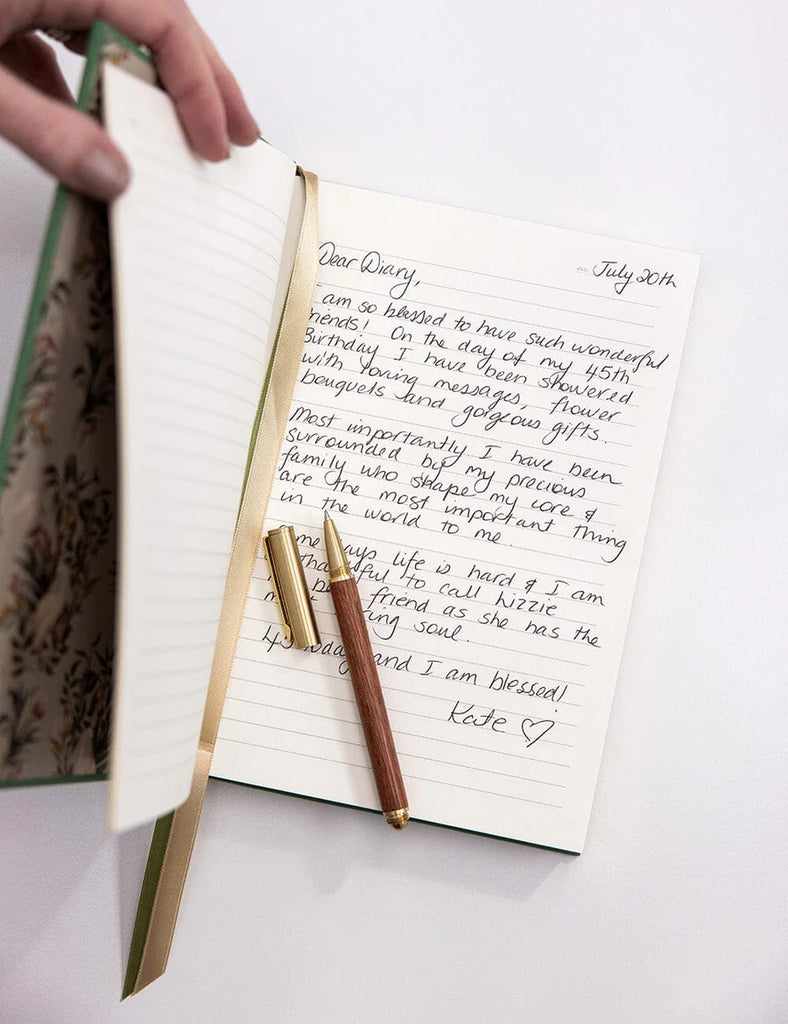 July 20th
Dear Diary,
I am so blessed to have such wonderful
friends! On the day of my 45th
Birthday I have been showered
with loving messages, flower
bouquets and gorgeous gifts.
Most importantly I have been
surrounded by my precious
family who shape my core &
are the most important thing
in the world to me.
life is hard & I am
to call Lizzie
friend as she has the
soul.
and I am blessed!
Kate ♡